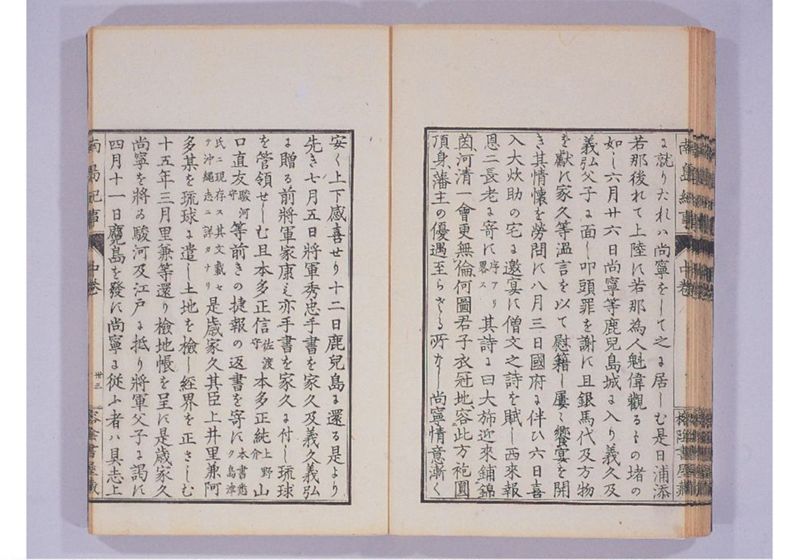 ニ就りたれハ尚寧をして之ニ居しむ是日浦添
若那後れて上陸ミ若那為人魁偉觀るもの堵の
如し六月廿六日尚寧等鹿兒島城ニ入り義久及
義弘父子ニ面し叩頭罪を謝ミ且銀馬代及方物
を獻ミ家久等溫言を以て慰籍し屢〻饗宴を開
き其情懷を勞問ミ八月三日國府ニ伴ひ六日喜
入大炊助の宅ニ邀宴ミ僧文之詩を賦し西來報
恩二長老ニ寄ミ序アリ畧ス其詩ニ曰大旆近來鋪錦
茵河清一會更無倫何圖君子衣冠地容此方袍圓
頂身藩主の優遇至らさる所なし尚寧情意漸く
南島紀事 中巻
安く上下感喜せり十二日鹿兒島ニ還る是より
先き七月五日將軍秀忠手書を家久及義久義弘
ニ贈る前將軍家康も亦手書を家久ニ付し琉球
を管領せしむ且本多正信佐渡守本多正純上野介山
口直友駿河守等前きの捷報の返書を寄ミ本書悉ク島津
氏ニ現存ス其文載セテ沖縄志ニ詳カナリ是歲家久其臣上井里兼阿
多某を琉球ニ遣し土地を檢し經界を正さしむ
十五年三月里兼等還り檢地帳を呈ミ是歲家久
尚寧を將ゐ駿河及江戸ニ抵り將軍父子ニ謁ミ
四月十一日麑島を發ミ尚寧ニ從ふ者ハ具志上
南島紀事 中巻 廿三